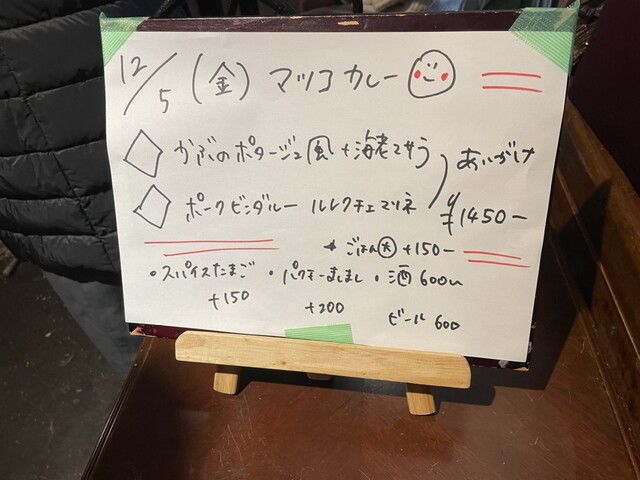 12/5(金) マツコカレー
かぶのポタージュ風+海老マサラ
ポークビンダルー ルレクチェマリネ
あいがけ
¥1450-
ごはん大+150-
・スパイスたまご ・パクチーましまし ・酒600
+150 +200 ビール 600